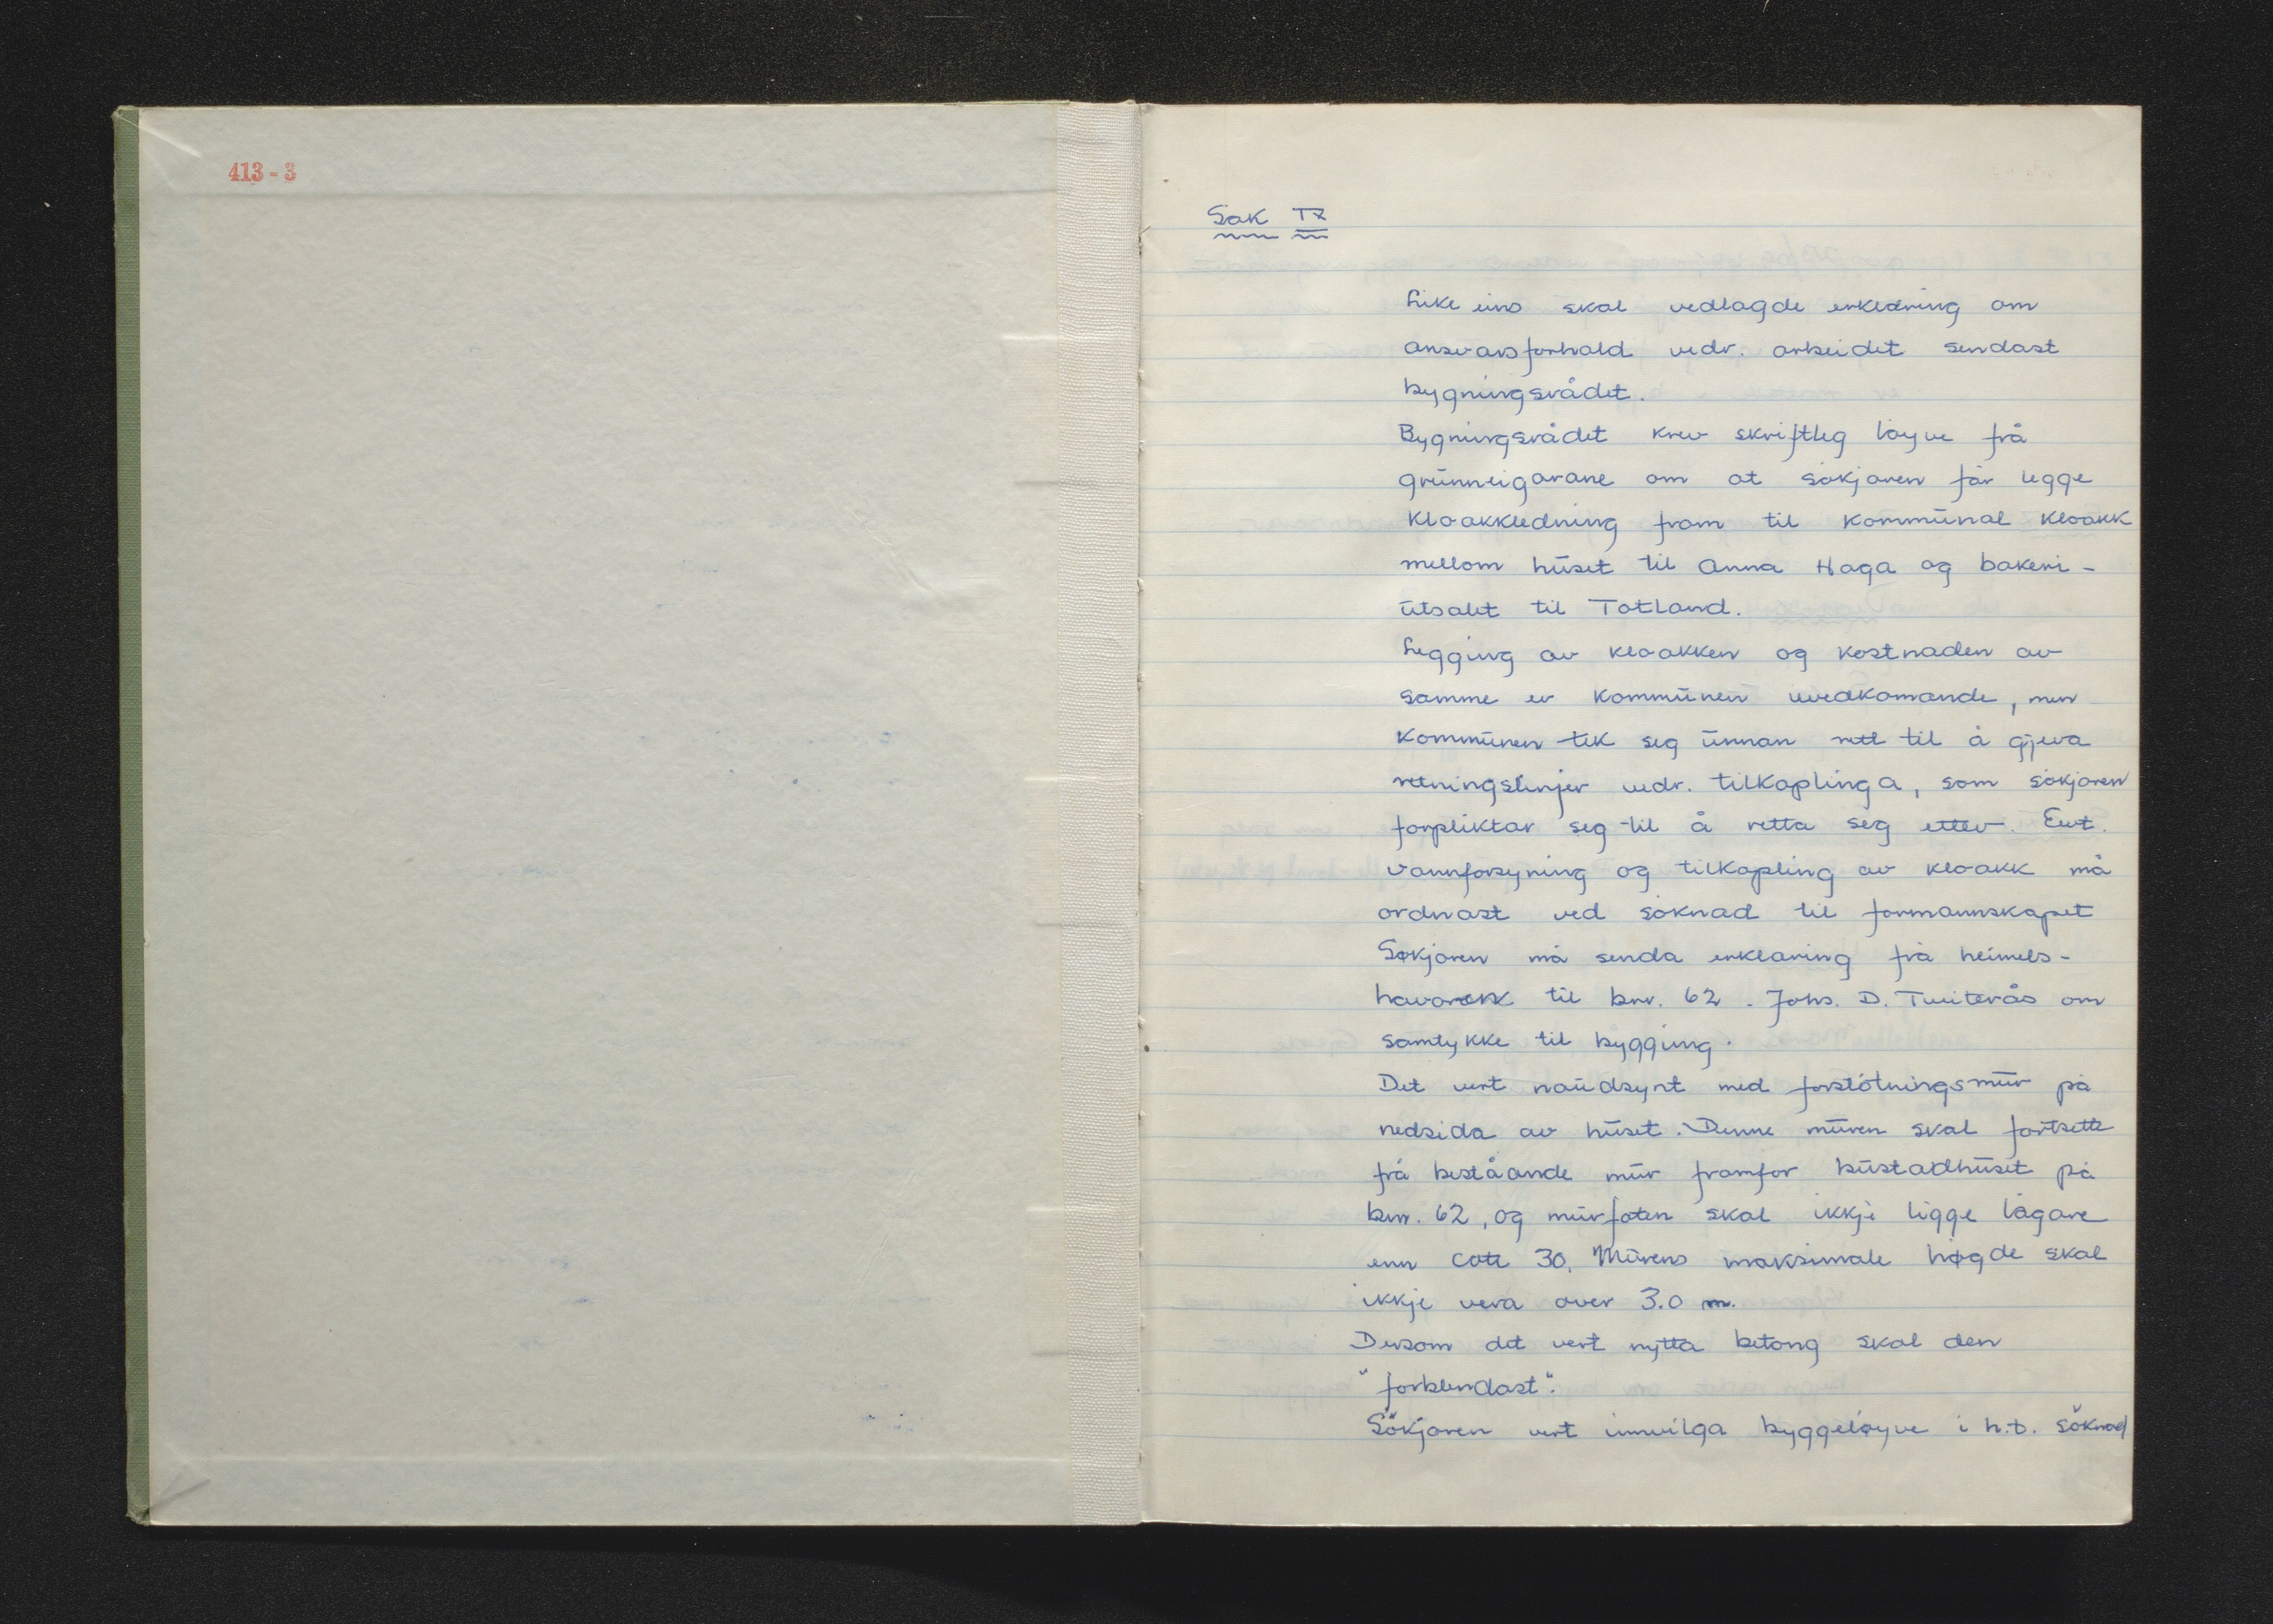 413 - 3
Sak IX
Like eins skal vedlagde erklæring om
ansvarsforhald vedr. arbeidet sendast
bygningsrådet.
Bygningsrådet krev skriftleg løyve frå
grunneigarane om at søkjaren får legge
kloakkledning fram til kommunal kloakk
mellom huset til Anna Haga og bakeri-
utsalet til Totland.
Legging av kloakken og kostnaden av
samme er kommunen uvedkomande, men
kommunen tek seg unnan rett til å gjeva
retningslinjer vedr. tilkoplinga, som søkjaren
forpliktar seg til å retta seg etter. Evt.
vannforsyning og tilkopling av kloakk må
ordnast ved søknad til formannskapet
Søkjaren må senda erklæring frå heimels-
havaren til bnr. 62. Johs. D. Tveiterås om
samtykke til bygging.
Det vert naudsynt med forstøtningsmur på
nedsida av huset. Denne muren skal fortsette
frå beståande mur framfor bustadhuset på
bnr. 62, og murfoten skal ikkje ligge lågare
enn cote 30. Murens maksimale høgde skal
ikkje vera over 3.0 m.
Dersom det vert nytta betong skal den
"forblendast".
Søkjaren vert innvilga byggeløyve i h.t. søknad